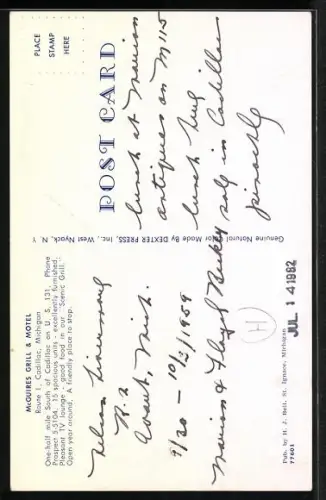 McGUIRES GRILL & MOTEL
Route 1, Cadillac, Michigan
One-half mile South of Cadillac on U. S. 131. Phone
Prospect 5-5104. 15 spacious units - excellently furnished.
Pleasant TV lounge - good food in our "Scenic Grill".
Open year around. A friendly place to stop.
POST CARD
PLACE
STAMP
HERE
Nelson
R. 2
Evart, Mich.
9/30 – 10/2/1959
Norman & Floyd
Genuine Natural Color Made By DEXTER PRESS, Inc., West Nyack, N. Y.
lunch at
antiques on M115
lunch
in Cadillac
H
JUL 14 1982
Pub. by H. J. Bell, St. Ignace, Michigan
77601